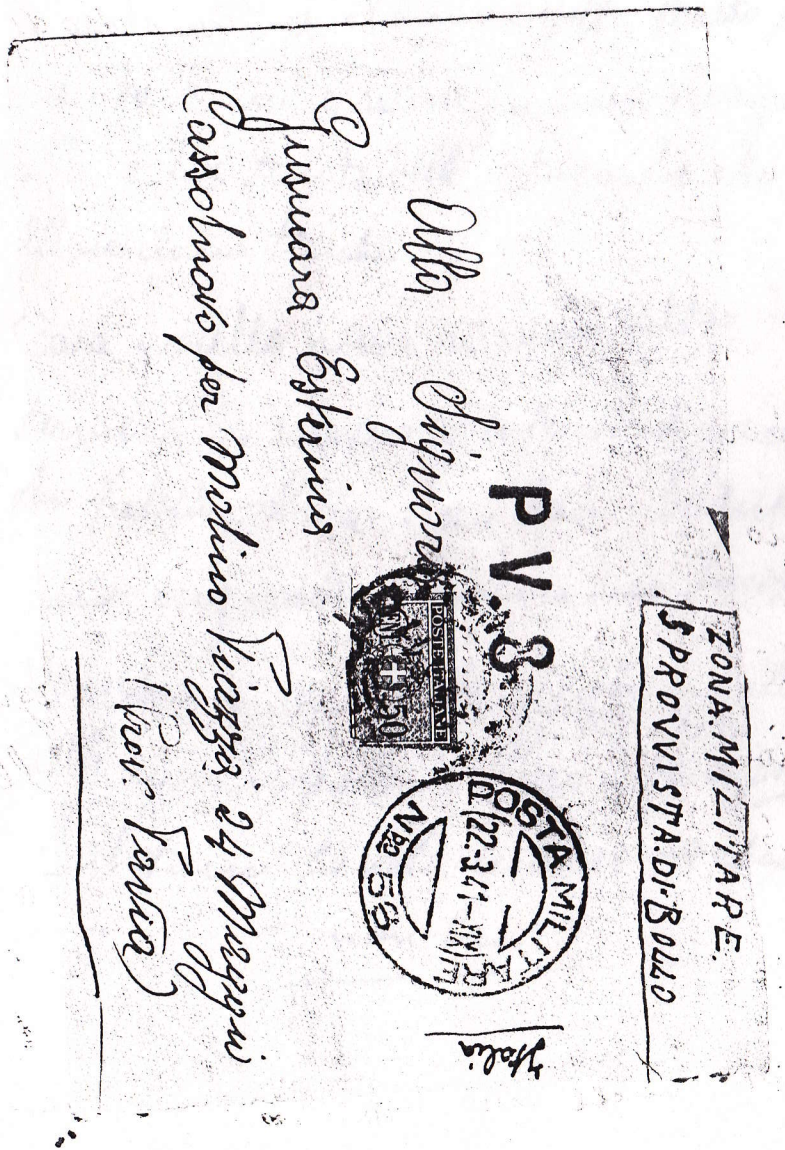 ZONA.MILITARE.
SPROVVISTA.DI-BOLLO
PV.8
POSTA MILITARE
22-3.41-XIX
Nro 58
Italia
POSTE ITALIANE
50
Alla Signora
Gusmara Esterina
Cassolnovo per Molino Piazza 24 Maggio
(Prov. Pavia)